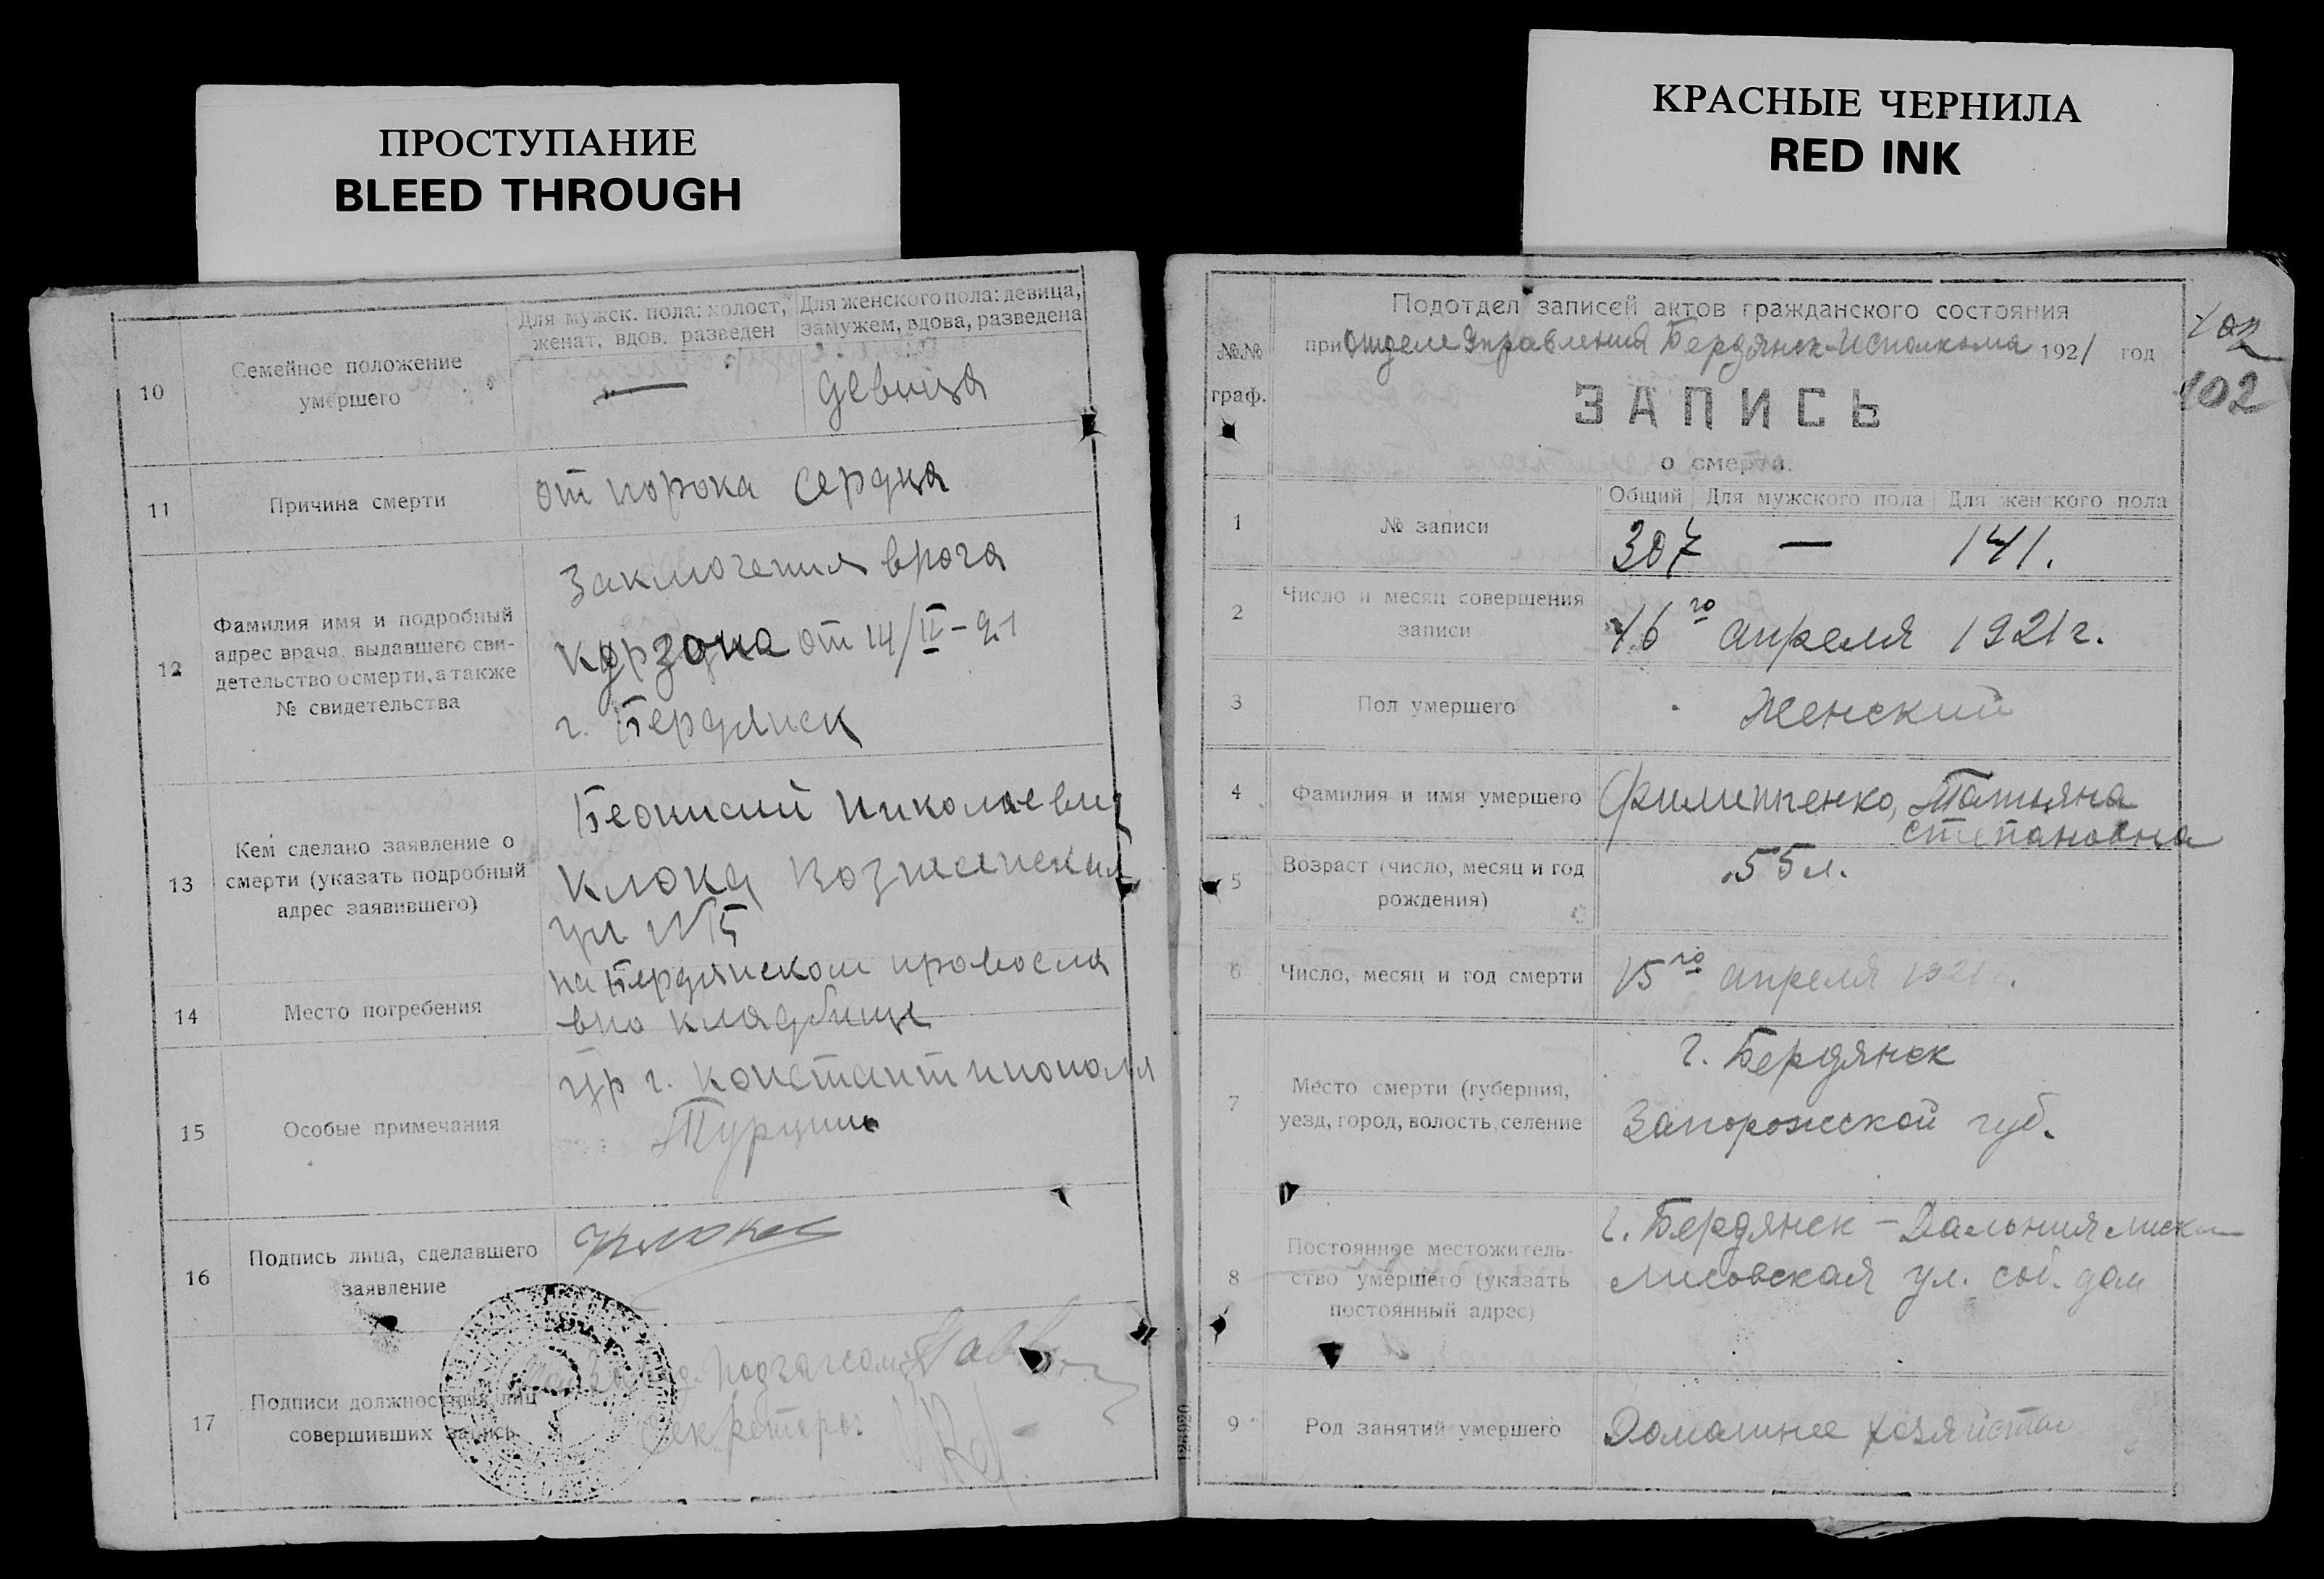 ПРОСТУПАНИЕ
BLEED THROUGH
КРАСНЫЕ ЧЕРНИЛА
RED INK
10
Семейное положение
умершего
Для мужск. пола: холост,
женат, вдов. разведен
Для женского пола: девица,
замужем, вдова, разведена
—
девица
11
Причина смерти
от порока сердца
12
Фамилия имя и подробный
адрес врача, выдавшего сви-
детельство о смерти, а также
№ свидетельства
Заключения врача
от 14/II-21
г. Бердянск
13
Кем сделано заявление о
смерти (указать подробный
адрес заявившего)
Николаевич
Клока
ул. №5
14
Место погребения
на Бердянском православ
вно кладбище
15
Особые примечания
гр г. Константинополя
Турции
16
Подпись лица, сделавшего
заявление
17
Подписи должностных лиц
совершивших запись
Секретарь:
126920
№№
граф.
Подотдел записей актов гражданского состояния
при Отделе Управления Бердянск-Исполкома 1921 год
102
102
ЗАПИСЬ
о смерти.
1
№ записи
Общий Для мужского пола Для женского пола
307 — 141.
2
Число и месяц совершения
записи
16го апреля 1921 г.
3
Пол умершего
Женский
4
Фамилия и имя умершего
Филипенко, Татьяна
Степановна
5
Возраст (число, месяц и год
рождения)
55 л.
6
Число, месяц и год смерти
15го апреля 1921.
7
Место смерти (губерния,
уезд, город, волость, селение
г. Бердянск
Запорожской губ.
8
Постоянное местожитель-
ство умершего (указать
постоянный адрес)
г. Бердянск - Дальния
ул. соб. дом
9
Род занятий умершего
Домашнее хозяйство